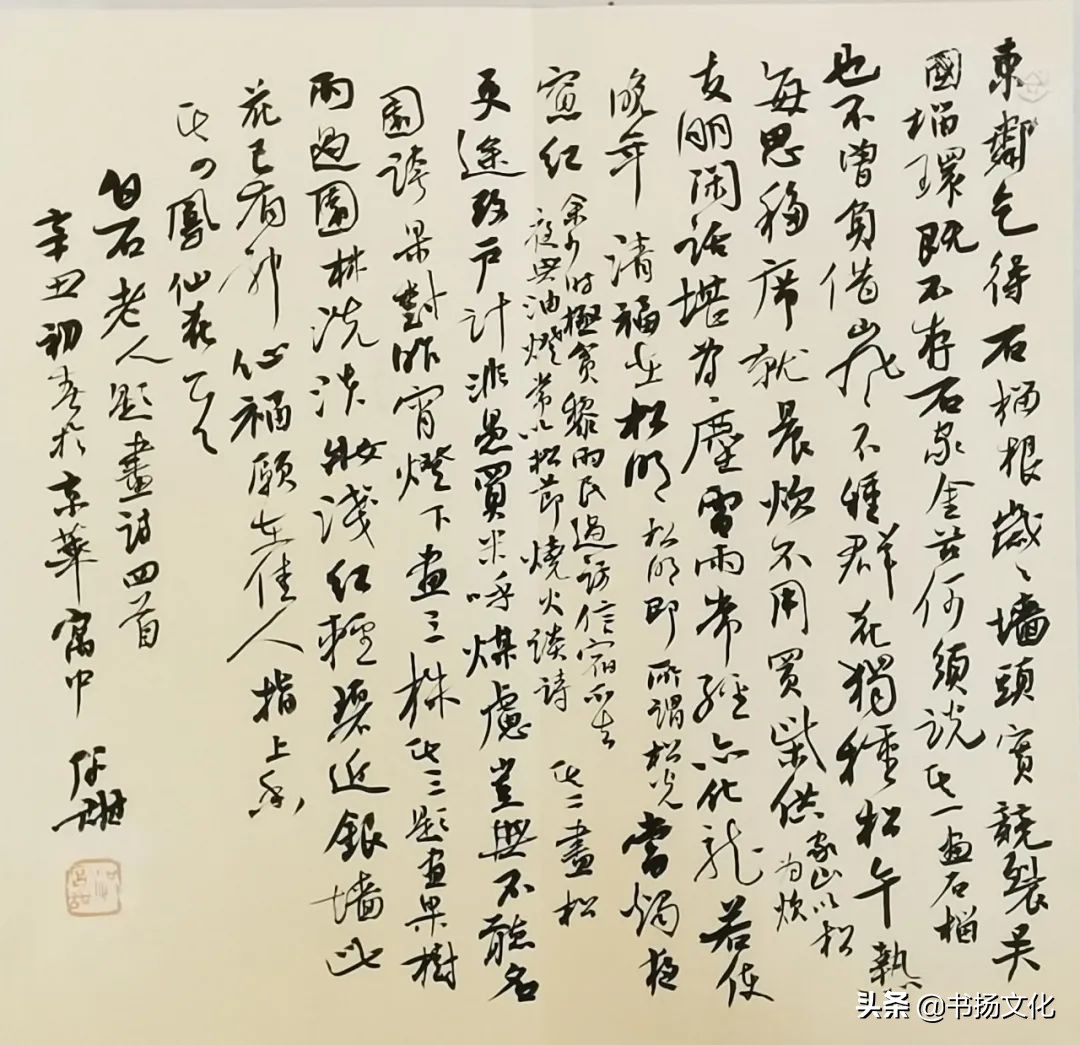 東鄰乞得石榴根歲〻墻頭實競裂吳
國榴環既不存石家金谷何須說 其一畫石榴
也不曾負借山民不種群花獨種松午熱
每思移席就晨炊不用買柴供 家山以松
為炊
友朋閑話堪為塵雷雨常經亦化龍若使
晚年清福在松明 松明即所謂松光 當燭夜
窗紅 余少時極貧黎雨民過訪信宿不去
夜無油燈常以松節燒火談詩 其二畫松
更途改戶計非愚買米呼煤慮豈無不能名
園誇果對昨宵燈下畫三株 其三題畫果樹
雨過園林洗淡妝淺紅輕碧近銀墻此
花已有神仙福願在佳人指上香
其四鳳仙花
白石老人題畫詩四首
辛丑初春於京華寓中
头条 @书扬文化